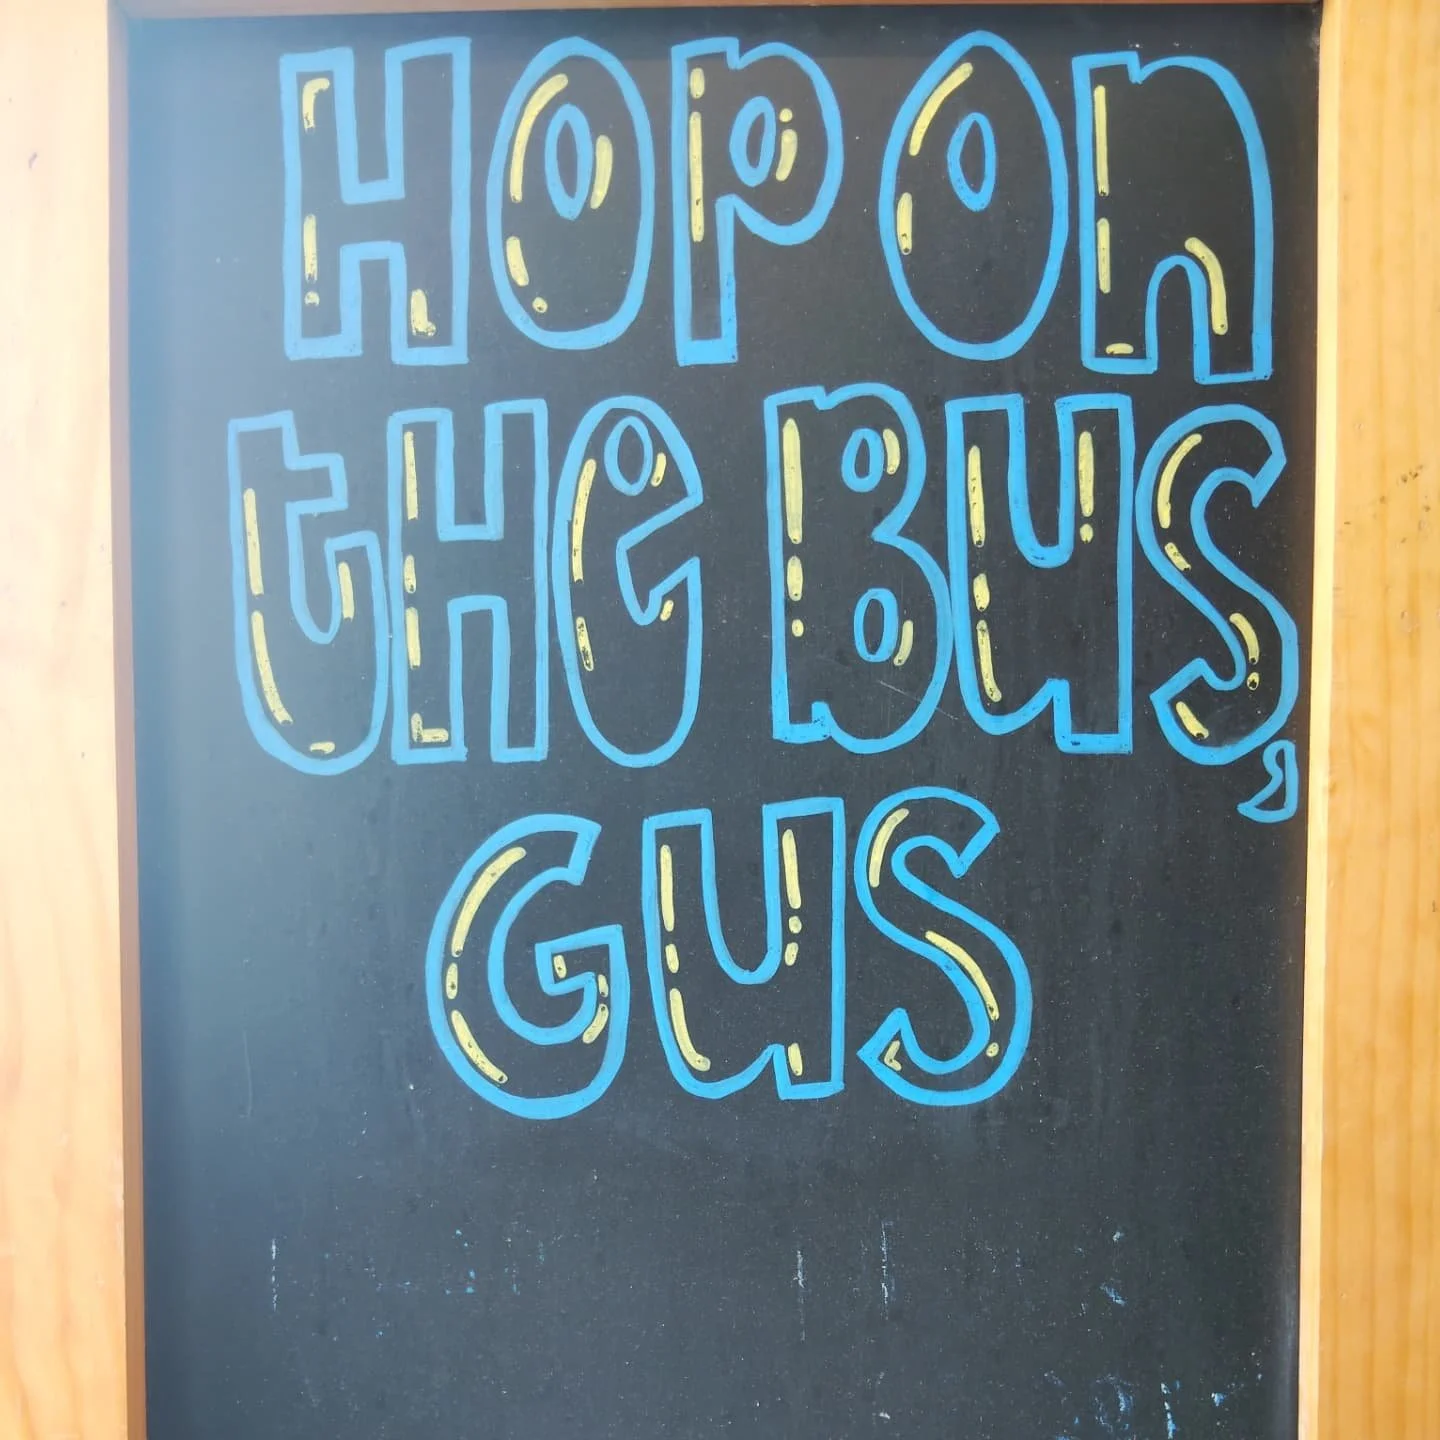 HOP On
tHe BUS,
GUS